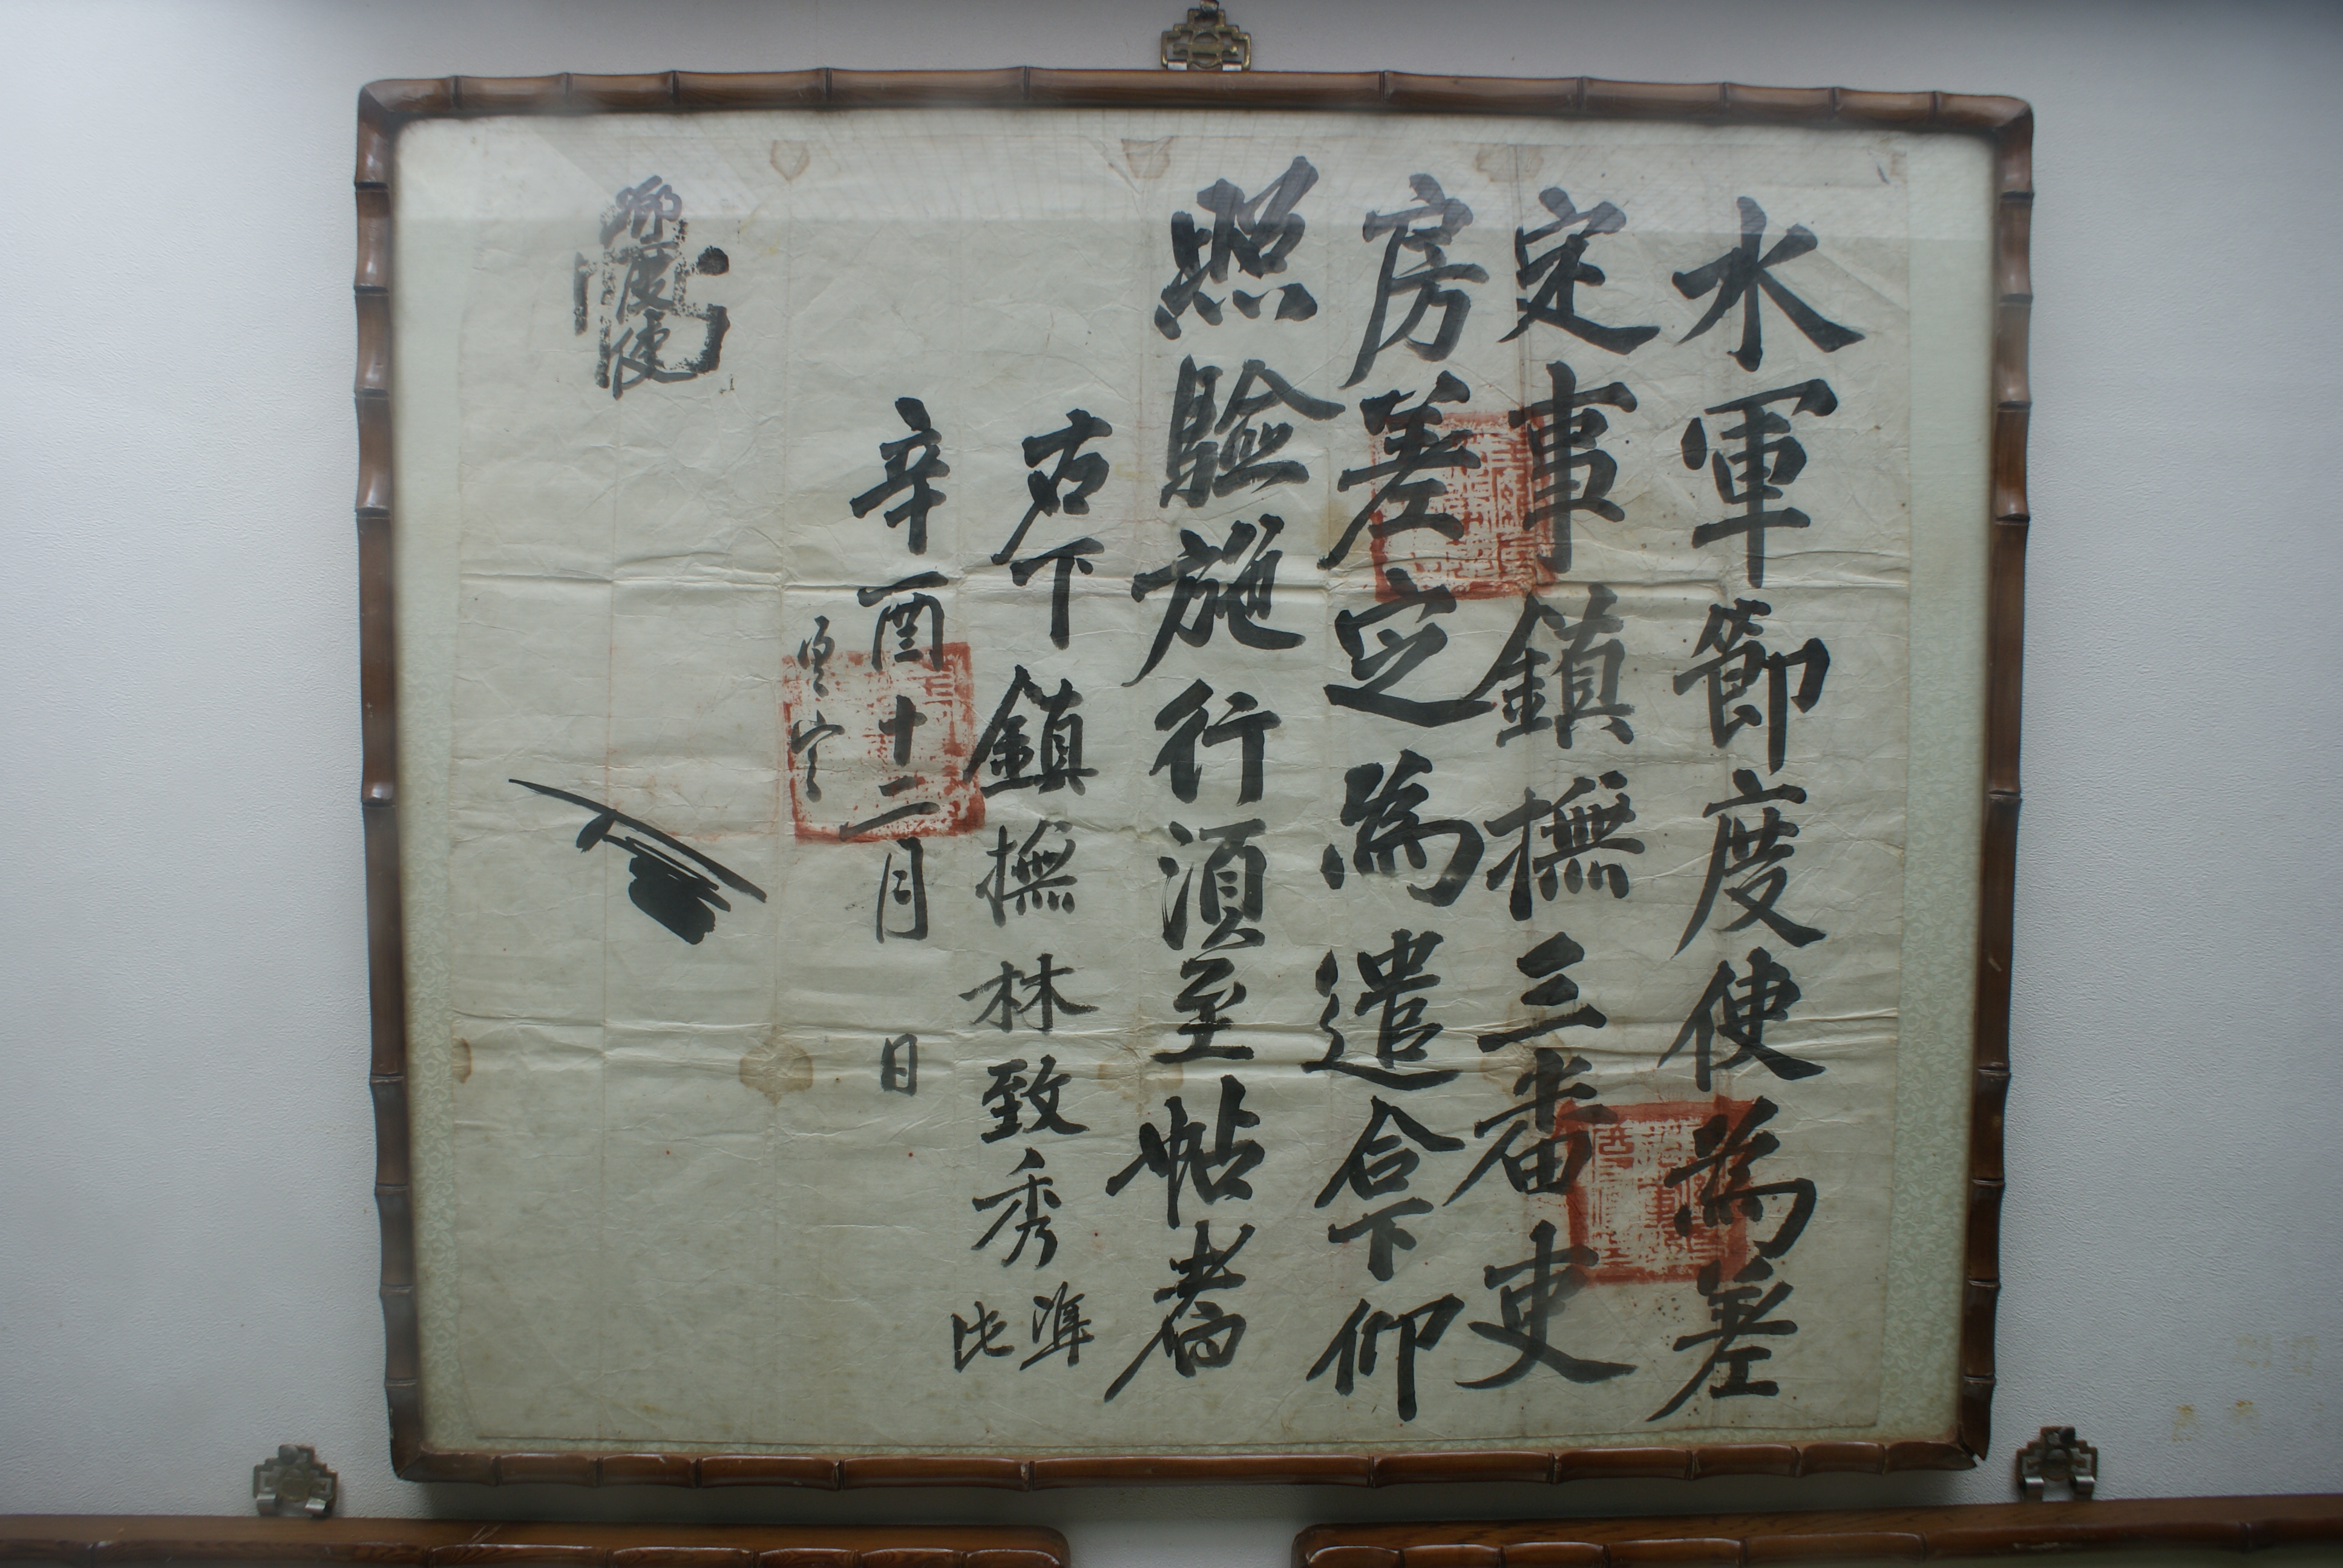 水軍節度使為差
定事鎮撫三番吏
房差定爲遣合下仰
照驗施行須至帖者
右下鎮撫林致秀 準此
辛酉十二月 日
節度使